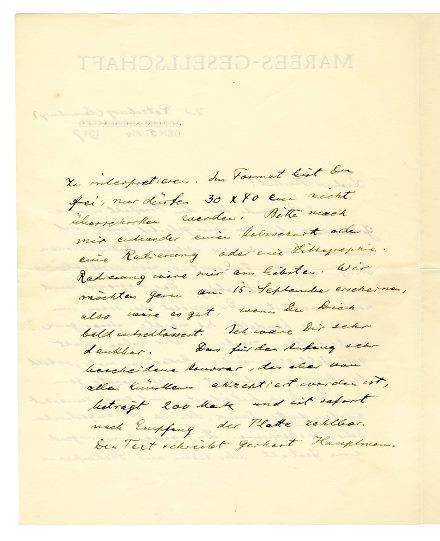 MARÉES-GESELLSCHAFT
zu interpretieren. Im Format bist Du
frei, nur dürfen 30 x 40 cm nicht
überschritten werden. Bitte mach
mir entweder einen Holzschnitt oder
eine Radierung oder eine Lithographie.
Radierung wäre mir am liebsten. Wir
möchten gern am 15. September erscheinen,
also wäre es gut wenn Du Dich
bald entschliesst. Ich wäre Dir sehr
dankbar. Das für den Anfang sehr
bescheidene Honorar, das aber von
allen Künstlern akzeptiert worden ist,
beträgt 200 Mark und ist sofort
nach Empfang der Platte zahlbar.
Den Text schreibt Gerhart Hauptmann.